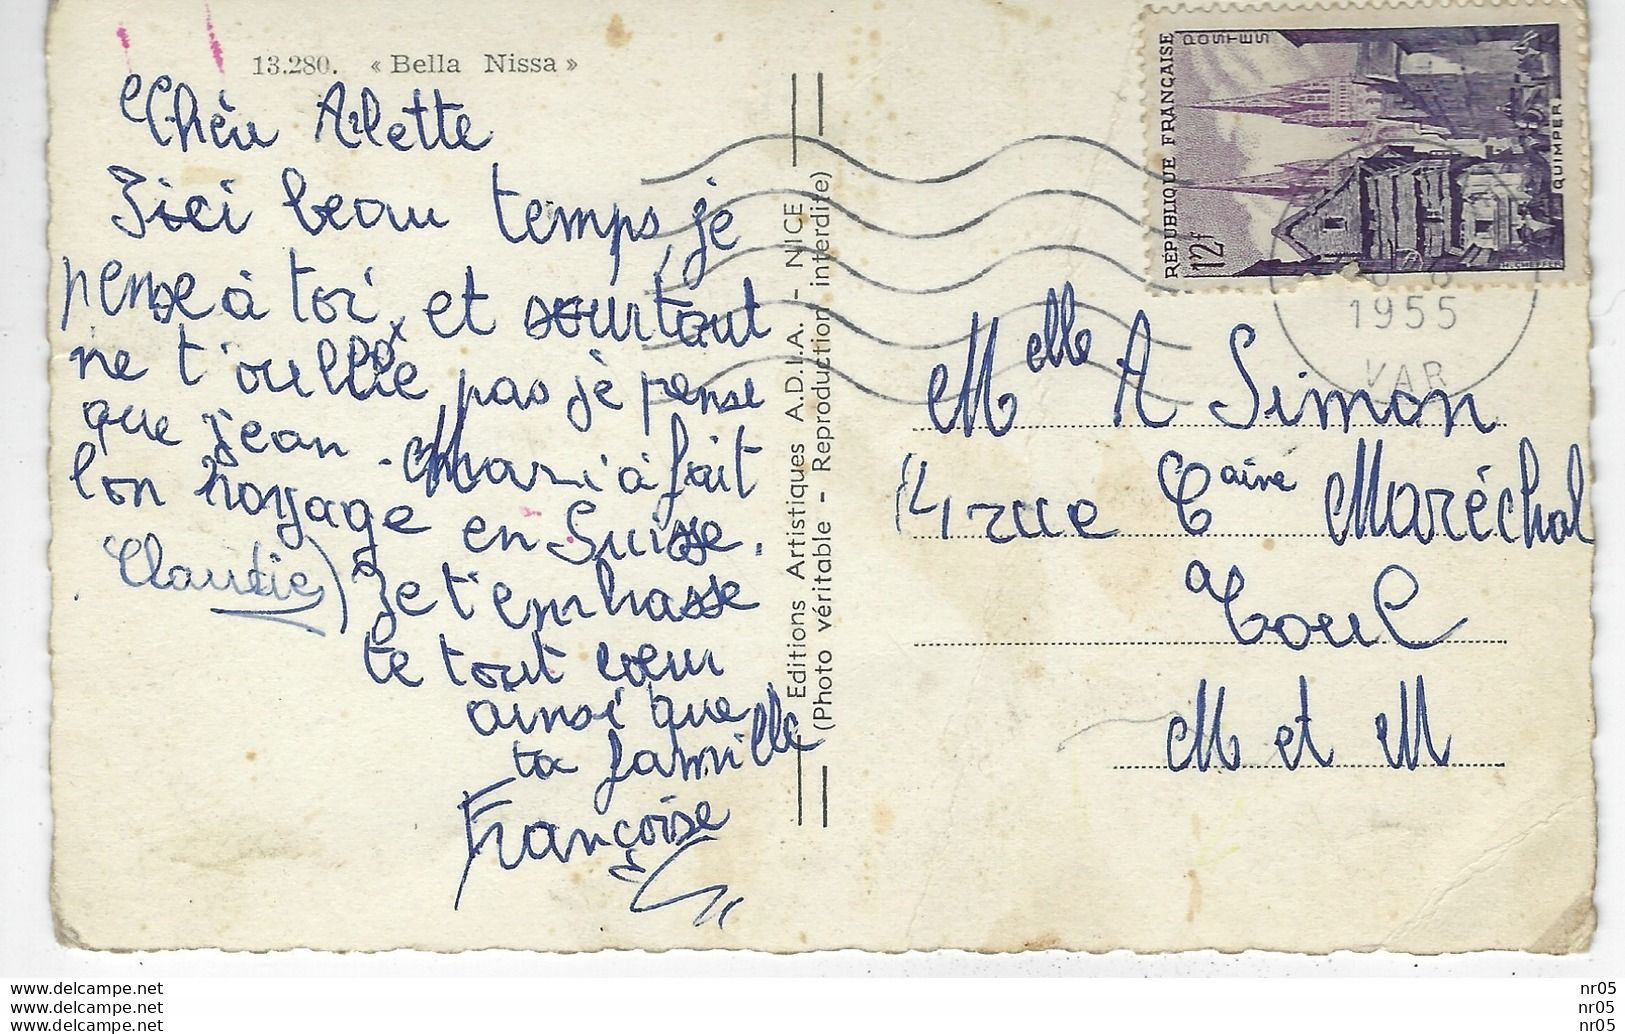 13.280. « Bella Nissa »
Chèr Arlette
Iici beau temps, je
pense à toi, et sourtout
ne t'oullie pas je pense
que jean-Mari à fait
bon voyage en Suisse.
Claudie) Je t'embrasse
te tout cœur
ainsi que
ta famille
Françoise
Editions Artistiques A.D.I.A. - NICE
(Photo véritable - Reproduction interdite)
RÉPUBLIQUE FRANÇAISE
POSTES
12f
QUIMPER
H. CHEFFER
1955
VAR
Melle A Simon
14 rue Caine Maréchal
a Toul
M et M
www.delcampe.net nr05
www.delcampe.net nr05
www.delcampe.net nr05